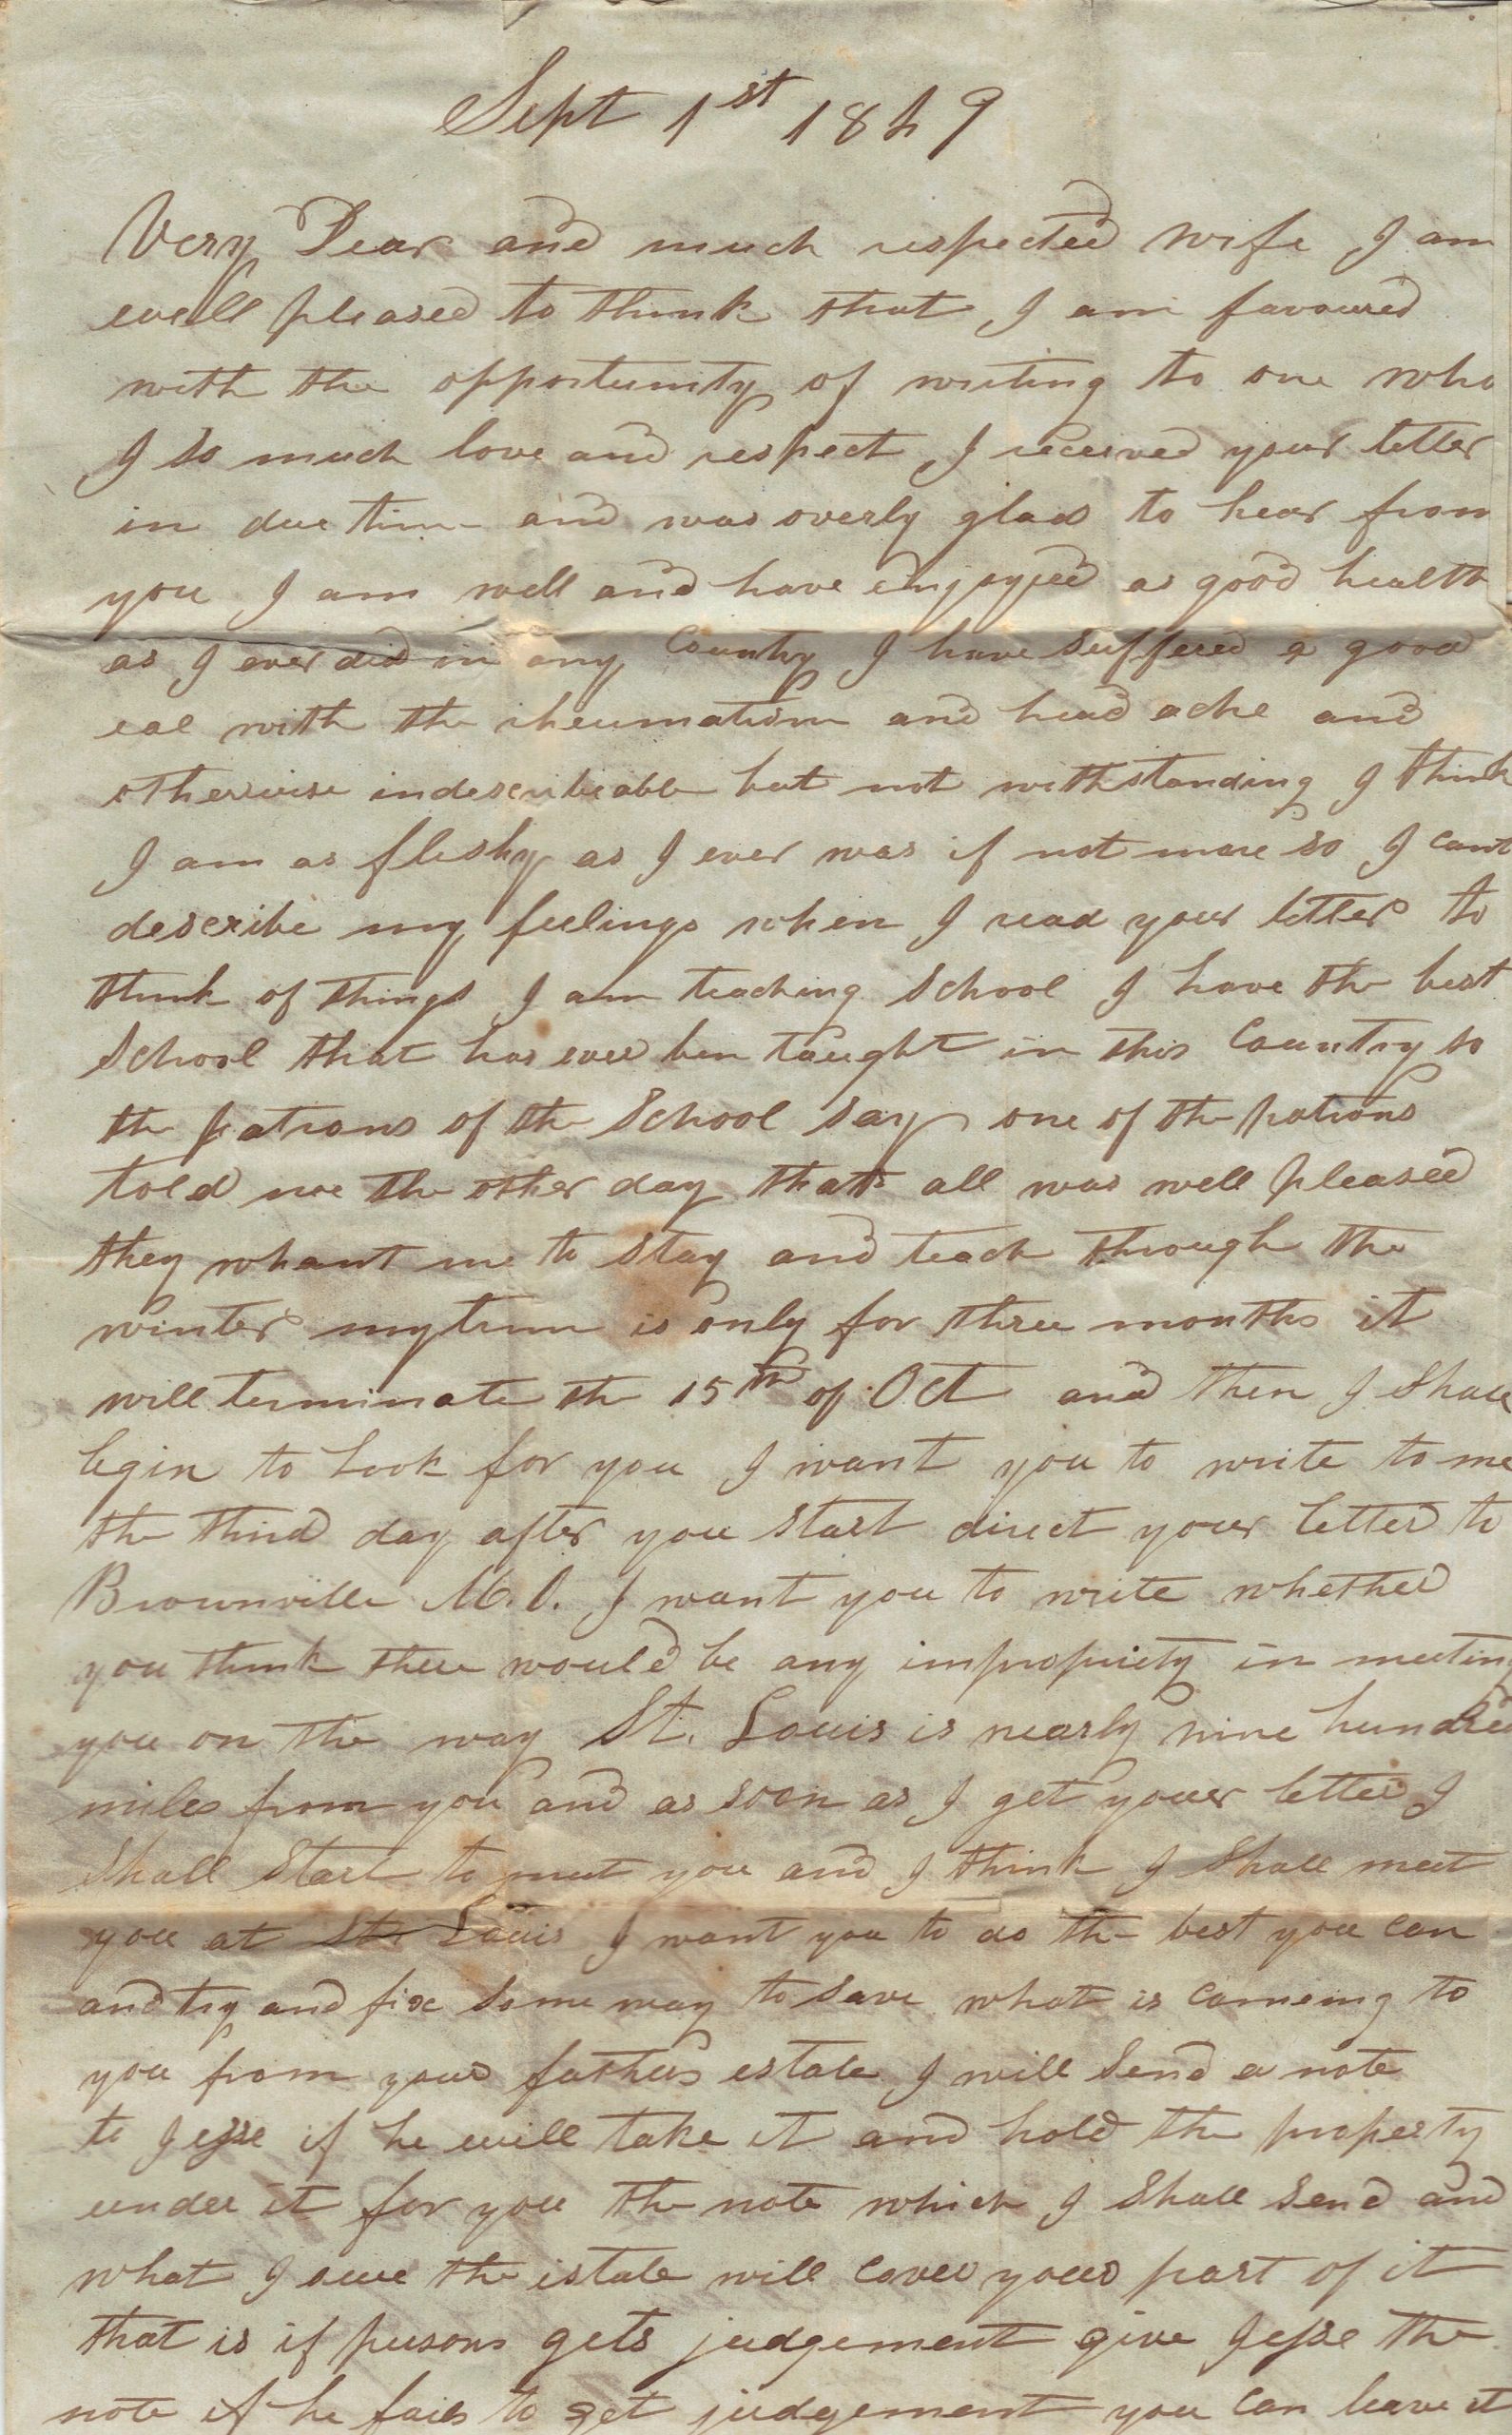 Sept 1st 1849
Very Dear and much respected wife I am
well pleased to think that I am favoured
with the opportunity of writing to one who
I so much love and respect I received your letter
in due time and was overly glad to hear from
you I am well and have enjoyed as good health
as I ever did in any Country I have suffered a good
eal with the rheumatism and head ache and
otherwise indescribeable but not withstanding I think
I am as fleshy as I ever was if not more so I cant
describe my feelings when I read your letter to
think of things I am teaching School I have the best
School that has ever ben taught in this Country so
the patrons of the School say one of the patrons
told me the other day that all was well pleased
they whant me to stay and teach through the
winter my term is only for three months it
will terminate the 15th of Oct and then I Shall
begin to look for you I want you to write to me
the third day after you start direct your letter to
Brownville M.O. I want you to write whether
you think there would be any impropriety in meetin
you on the way St. Louis is nearly nine hundred
miles from you and as soon as I get your letter I
Shall Start to meet you and I think I Shall meet
you at St. Louis I want you to do the best you can
and try and fix Some way to save what is comeing to
you from your fathers estate I will Send a note
to Jesse if he will take it and hold the property
under it for you the note which I Shall Send and
what I owe the estate will cover your part of it
that is if persons gets judgement give Jesse the
note if he fails to get judgement you can leave it